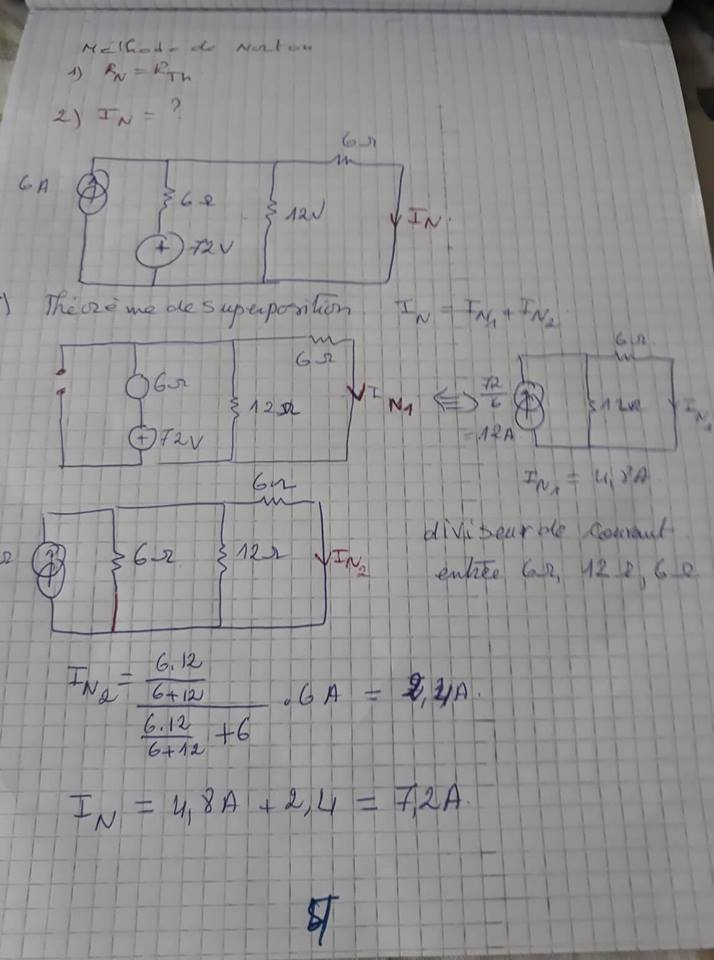 Méthode de Norton
1) RN = RTh
2) IN = ?
6Ω
6 A
6Ω
12V
IN.
72V
Théorème de superposition
IN = IN1 + IN2
6Ω
6Ω
12Ω
72V
IN1
⇔
72/6
= 12A
6Ω
12Ω
IN1
IN1 = 4,8A
6Ω
6Ω
12Ω
IN2
diviseur de courant
entrée 6Ω, 12Ω, 6Ω
IN2 = (6.12/(6+12)) / (6.12/(6+12) + 6) . 6 A = 2,4A.
IN = 4,8A + 2,4 = 7,2A.